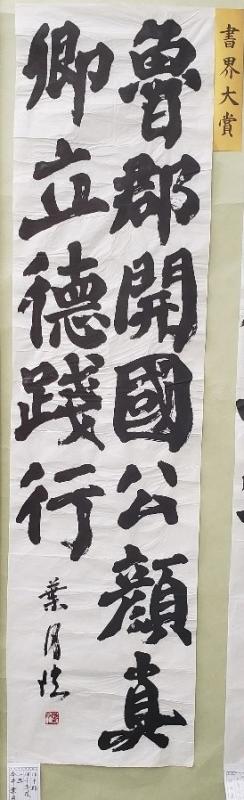 書界大賞
魯郡開國公顔真
卿立德踐行